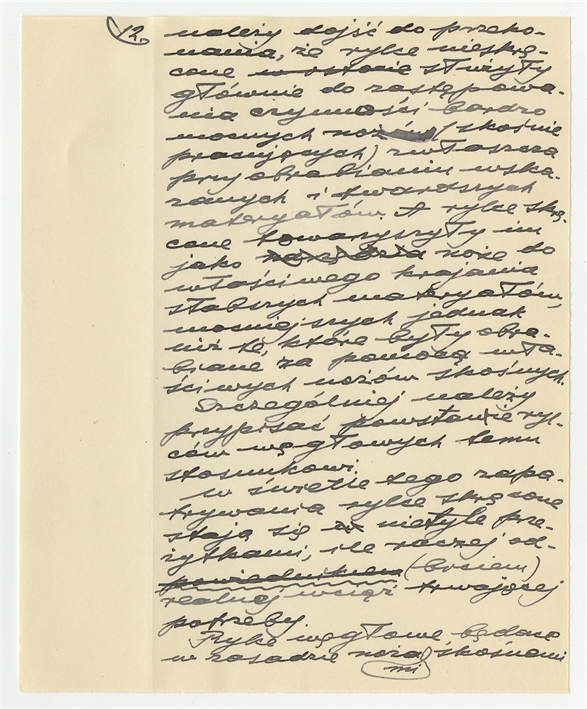 12.
należy dojść do przeko-
nania, że rylce nieskrę-
cone w istocie służyły
głównie do zastępowa-
nia czynności bardzo
mocnych noży (skośnie
pracujących) zwłaszcza
przy obrabianiu wska-
zanych i twardszych
materyałów. A rylce skrę-
cone towarzyszyły im
jako noże do
właściwego krajania
słabszych materyałów,
mocniejszych jednak
niż te, które były obra-
biane za pomocą wła-
ściwych nożów skośnych.
Szczególniej należy
przypisać powstanie ryl-
ców węgłowych temu
stosunkowi.
W świetle tego zapa-
trywania rylce skręcone
stają się nietyle prze-
żytkami, ile raczej od-
powiednikiem
realnej wciąż trwającej
potrzeby.
Rylce węgłowe będąc
w zasadzie nożami skośnemi